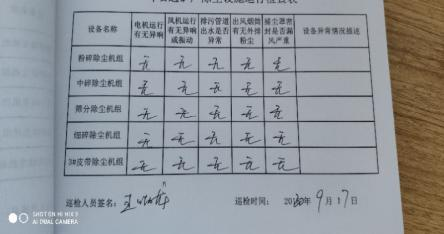 除尘设施运行检查表
设备名称 电机运行有无异响 风机运行有无异响或振动 排污管道出水是否异常 出风烟筒有无外排粉尘 除尘罩密封是否漏风严重 设备异常情况描述
粉碎除尘机组 无 无 无 无 无
中碎除尘机组 无 无 无 无 无
筛分除尘机组 无 无 无 无 无
细碎除尘机组 无 无 无 无 无
3#皮带除尘机组 无 无 无 无 无
巡检人员签名: 巡检时间: 2020年9月17日
SHOT ON MI MIX 3
AI DUAL CAMERA